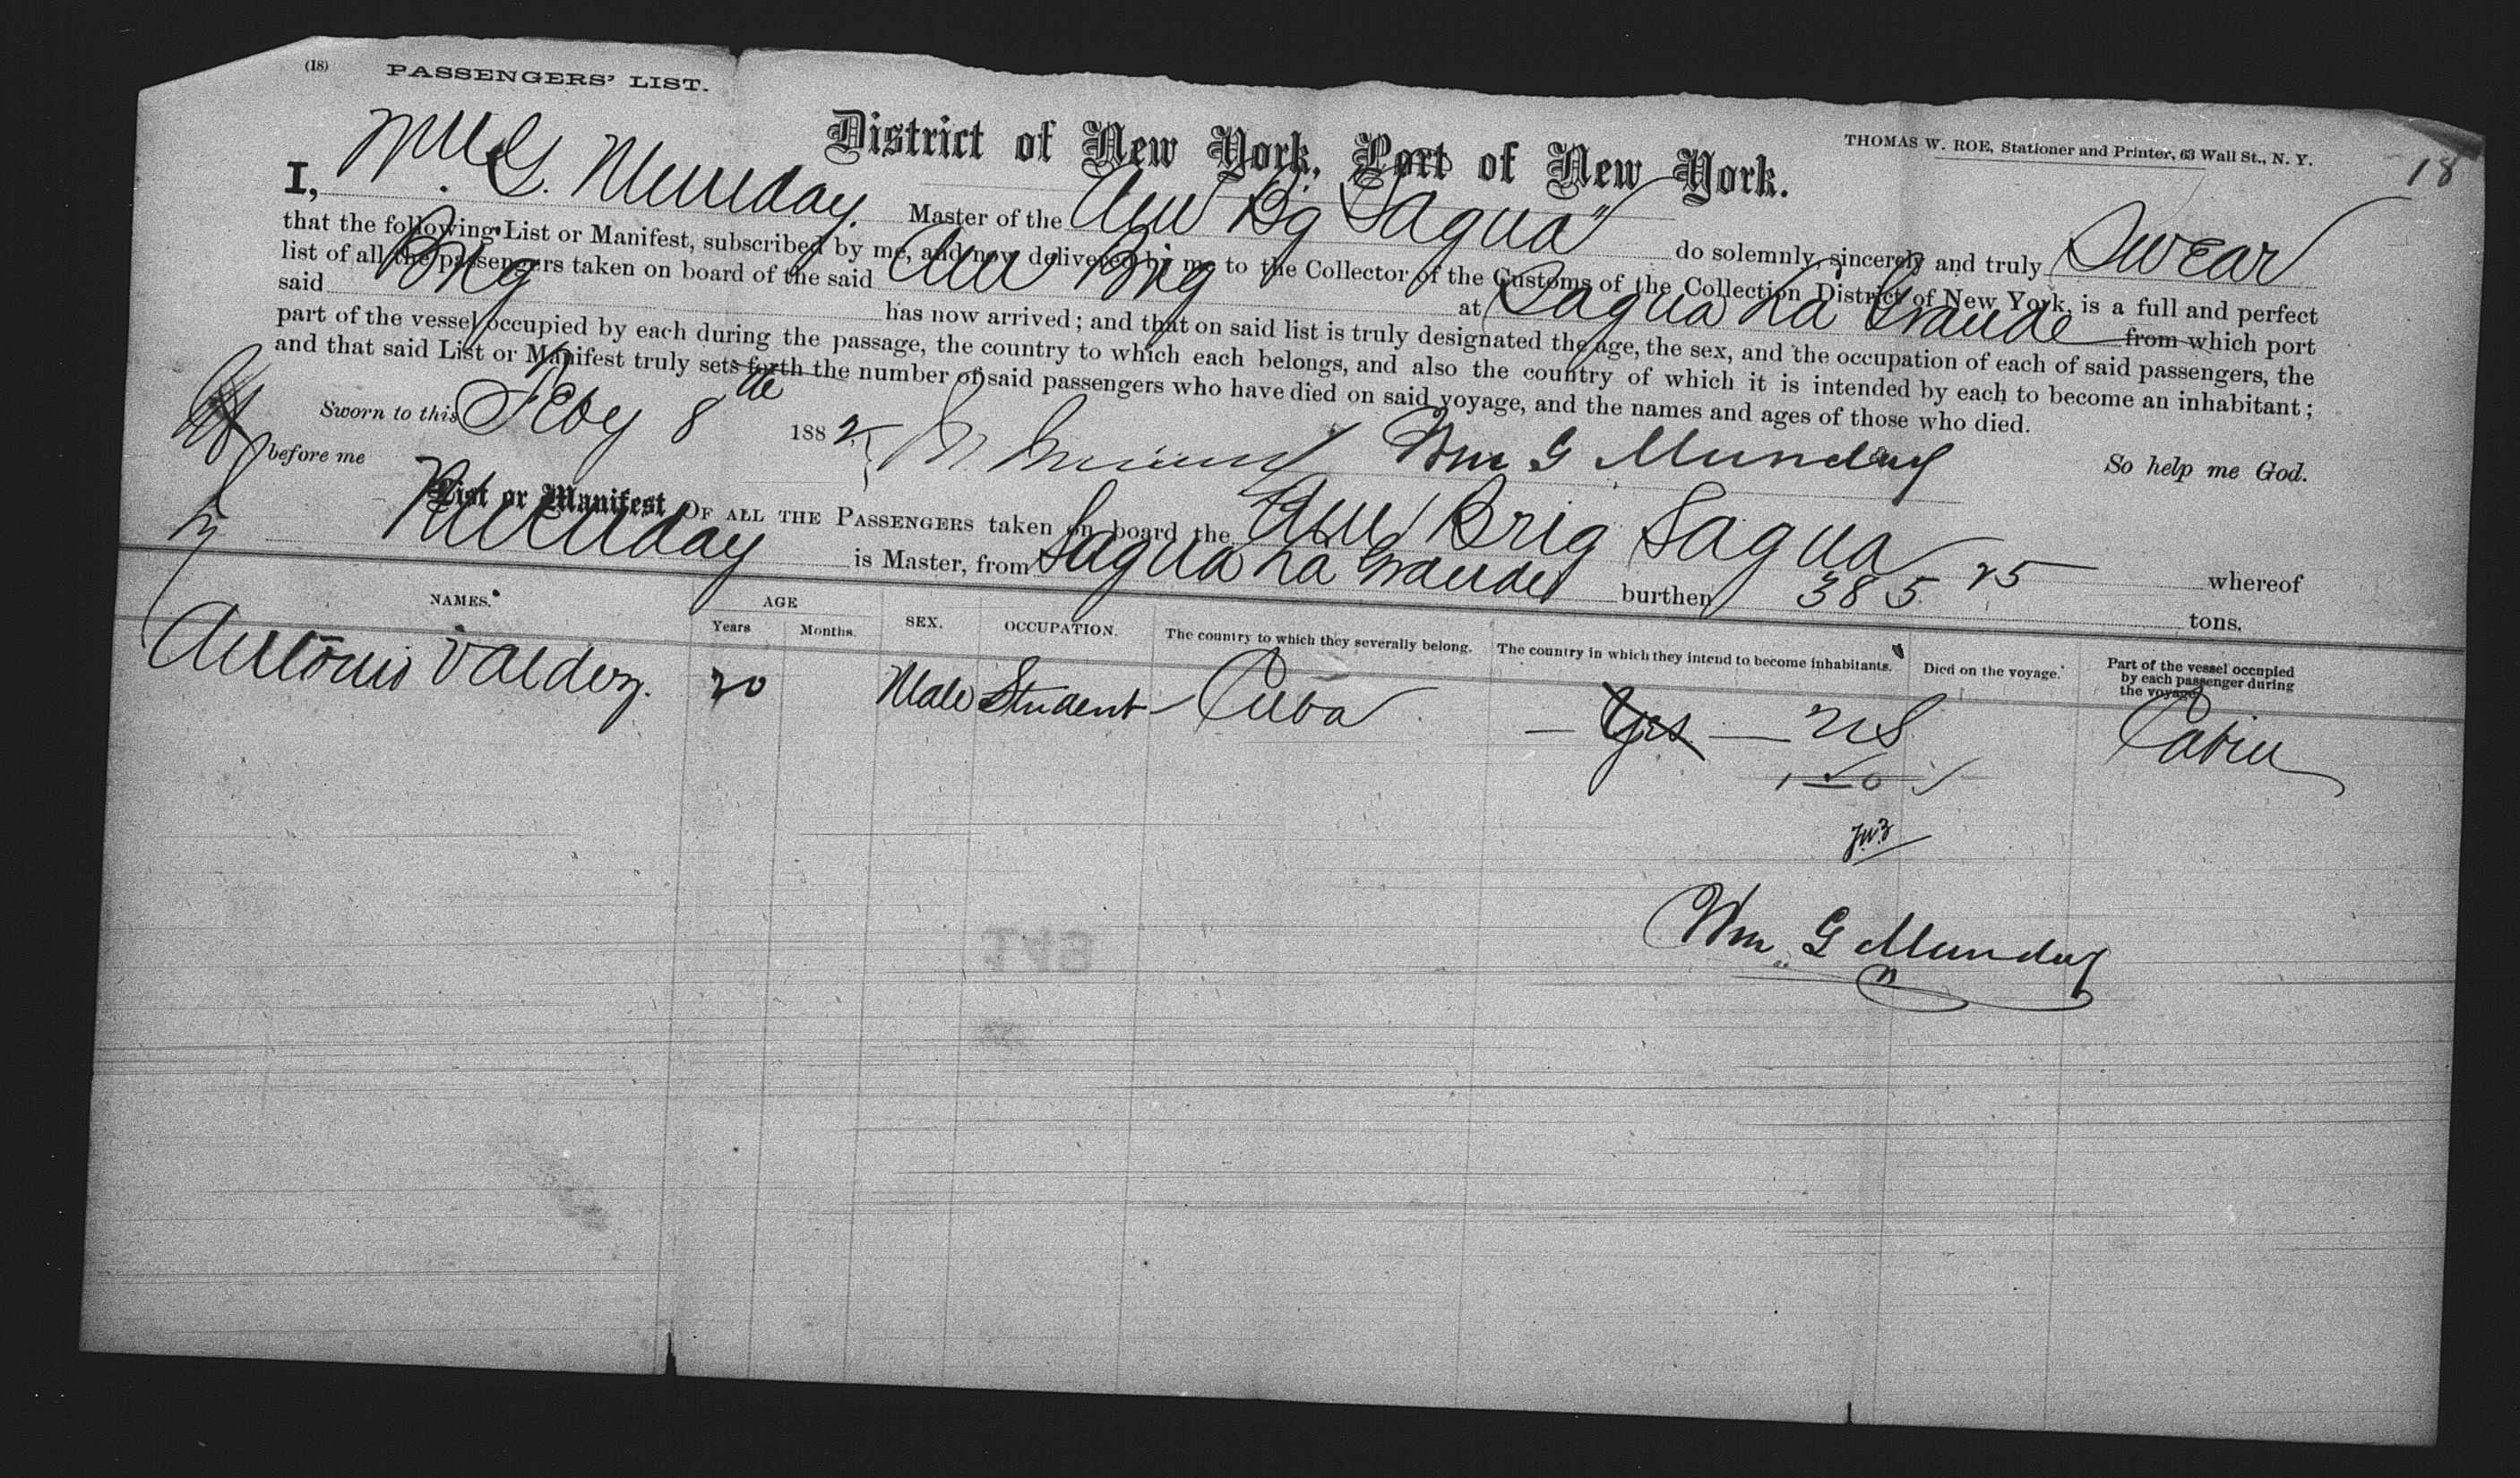 (18) PASSENGERS' LIST.
District of New York, Port of New York.
THOMAS W. ROE, Stationer and Printer, 63 Wall St., N. Y.
18
I, Wm G. Munday. Master of the Am Bg "Sagua" do solemnly, sincerely and truly Swear
that the following List or Manifest, subscribed by me, and now delivered by me to the Collector of the Customs of the Collection District of New York, is a full and perfect
list of all the passengers taken on board of the said Am Brig at Sagua La Grande from which port
said Brig has now arrived; and that on said list is truly designated the age, the sex, and the occupation of each of said passengers, the
part of the vessel occupied by each during the passage, the country to which each belongs, and also the country of which it is intended by each to become an inhabitant;
and that said List or Manifest truly sets forth the number of said passengers who have died on said voyage, and the names and ages of those who died.
Sworn to this Feby 8th 1882 Wm G Munday So help me God.
before me
List or Manifest OF ALL THE PASSENGERS taken on board the Am Brig Sagua whereof
Munday is Master, from Sagua La Grande burthen 385 25 tons.
NAMES. AGE SEX. OCCUPATION. The country to which they severally belong. The country in which they intend to become inhabitants. Died on the voyage. Part of the vessel occupied by each passenger during the voyage
Years Months.
Antonio Valdez. 20 Male Student Cuba — Yes — US Cabin
1 — 0
Wm G Munday